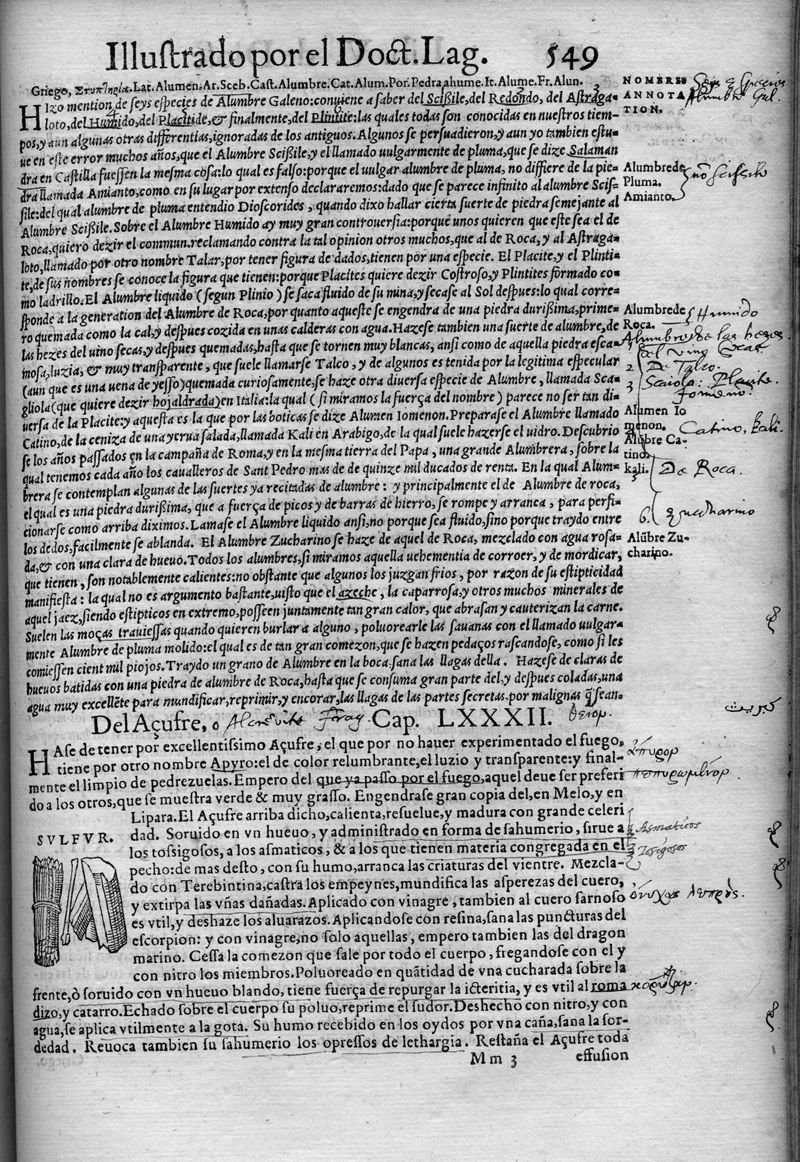 Illustrado por el Doct. Lag. 549
Griego, Στυπτηρία. Lat. Alumen. Ar. Sceb. Cast. Alumbre. Cat. Alum. Por. Pedra hume. It. Alume. Fr. Alun.
NOMBRES
HIzo mention de seys especies de Alumbre Galeno: conuiene a saber del Scißile, del Redondo, del Astraga-
ANNOTA
loto, del Humido, del Placitide, & finalmente, del Plintite: las quales todas son conocidas en nuestros tiem-
TION.
pos, y aun algunas otras differentias, ignoradas de los antiguos. Algunos se persuadieron, y aun yo tambien estu-
ue en este error muchos años, que el Alumbre Scißile, y el llamado uulgarmente de pluma, que se dize Salaman
dra en Castilla fuessen la mesma cosa: lo qual es falso: porque el uulgar alumbre de pluma, no differe de la pie-
Alumbre de
dra llamada Amianto, como en su lugar por extenso declararemos: dado que se parece infinito al alumbre Scis-
Pluma.
sile: del qual alumbre de pluma entendio Dioscorides, quando dixo hallar cierta suerte de piedra semejante al
Amianto.
Alumbre Scißile. Sobre el Alumbre Humido ay muy gran controuersia: porqué unos quieren que este sea el de
Roca, quiero dezir el commun. reclamando contra la tal opinion otros muchos, que al de Roca, y al Astraga-
loto, llamado por otro nombre Talar, por tener figura de dados, tienen por una especie. El Placite, y el Plinti-
te, de sus nombres se conoce la figura que tienen: porque Placites quiere dezir Costroso, y Plintites formado co-
mo ladrillo. El Alumbre liquido (segun Plinio) se saca fluido de su mina, y secase al Sol despues: lo qual corre-
sponde a la generation del Alumbre de Roca, por quanto aqueste se engendra de una piedra durißima, prime-
Alumbre de
ro quemada como la cal, y despues cozida en unas calderas con agua. Hazese tambien una suerte de alumbre, de
Roca.
las hezes del uino secas, y despues quemadas, hasta que se tornen muy blancas, ansi como de aquella piedra esca-
mosa, luzia, & muy transparente, que suele llamarse Talco, y de algunos es tenida por la legitima especular
(aun que es una uena de yesso) quemada curiosamente, se haze otra diuersa especie de Alumbre, llamada Sca-
gliola (que quiere dezir hojaldrada) en Italia: la qual (si miramos la fuerça del nombre) parece no ser tan di-
uersa de la Placite: y aquesta es la que por las boticas se dize Alumen Iomenon. Preparase el Alumbre llamado
Alumen Io
Catino, de la ceniza de una yerua salada, llamada Kali en Arabigo, de la qual suele hazerse el uidro. Descubrio
menon.
se los años passados en la campaña de Roma, y en la mesma tierra del Papa, una grande Alumbrera, sobre la
Alūbre Ca-
qual tenemos cada año los caualleros de Sant Pedro mas de quinze mil ducados de renta. En la qual Alum-
tino.
brera se contemplan algunas de las suertes ya recitadas de alumbre: y principalmente el de Alumbre de roca,
kali.
el qual es una piedra durißima, que a fuerça de picos y de barras de hierro, se rompe y arranca, para perfi-
cionarse como arriba diximos. Lamase el Alumbre liquido ansi, no porque sea fluido, sino porque traydo entre
los dedos, facilmente se ablanda. El Alumbre Zucharino se haze de aquel de Roca, mezclado con agua rosa-
Alūbre Zu-
da, & con una clara de hueuo. Todos los alumbres, si miramos aquella uehementia de corroer, y de mordicar,
charino.
que tienen, son notablemente calientes: no obstante que algunos los juzgan frios, por razon de su estipticidad
manifiesta: la qual no es argumento bastante, uisto que el azeche, la caparrosa, y otros muchos minerales de
aquel jaez, siendo estipticos en extremo, posseen juntamente tan gran calor, que abrasan y cauterizan la carne.
Suelen las moças trauiessas quando quieren burlar a alguno, poluorearle las sauanas con el llamado uulgar-
mente Alumbre de pluma molido: el qual es de tan gran comezon, que se hazen pedaços rascandose, como si les
comiessen cient mil piojos. Traydo un grano de Alumbre en la boca, sana las llagas della. Hazese de claras de
hueuos batidas con una piedra de alumbre de Roca, hasta que se consuma gran parte del, y despues coladas, una
agua muy excellēte para mundificar, reprimir, y encorar, las llagas de las partes secretas, por malignas q̃ sean.
Del Açufre, Cap. LXXXII.
HAse de tener por excellentissimo Açufre, el que por no hauer experimentado el fuego,
tiene por otro nombre Apyro: el de color relumbrante, el luzio y transparente: y final-
mente el limpio de pedrezuelas. Empero del que ya passo por el fuego, aquel deue ser preferi
do a los otros, que se muestra verde & muy grasso. Engendrase gran copia del, en Melo, y en
Lipara. El Açufre arriba dicho, calienta, resuelue, y madura con grande celeri
SVLFVR.
dad. Soruido en vn hueuo, y administrado en forma de sahumerio, sirue a
los tossigosos, a los asmaticos, & a los que tienen materia congregada en el
pecho: de mas desto, con su humo, arranca las criaturas del vientre. Mezcla-
do con Terebintina, castra los empeynes, mundifica las asperezas del cuero,
y extirpa las vñas dañadas. Aplicado con vinagre, tambien al cuero sarnoso
es vtil, y deshaze los aluarazos. Aplicandose con resina, sana las puncturas del
escorpion: y con vinagre, no solo aquellas, empero tambien las del dragon
marino. Cessa la comezon que sale por todo el cuerpo, fregandose con el y
con nitro los miembros. Poluoreado en quātidad de vna cucharada sobre la
frente, ò soruido con vn hueuo blando, tiene fuerça de repurgar la icteritia, y es vtil al roma
dizo, y catarro. Echado sobre el cuerpo su poluo, reprime el sudor. Deshecho con nitro, y con
agua, se aplica vtilmente a la gota. Su humo recebido en los oydos por vna caña, sana la sor-
dedad. Reuoca tambien su sahumerio los opressos de lethargia. Restaña el Açufre toda
Mm 3 effusion